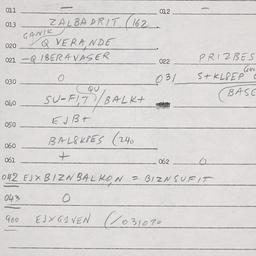 011 — 012 —
013 ZALBADRIT (162
GANIK
020 /Q VERANDE
021 —QIBERAVASER 022 PRIZBES
030 0 031 S+KLSEP
(BASE
QU
040 SU-FIT)/BALK+
050 EJB+
060 BALSKBES (240
061 + 062 0
042 EJXBIZNBALKON = BIZNSUFIT
043 0
900 EJXGIVEN (/031070